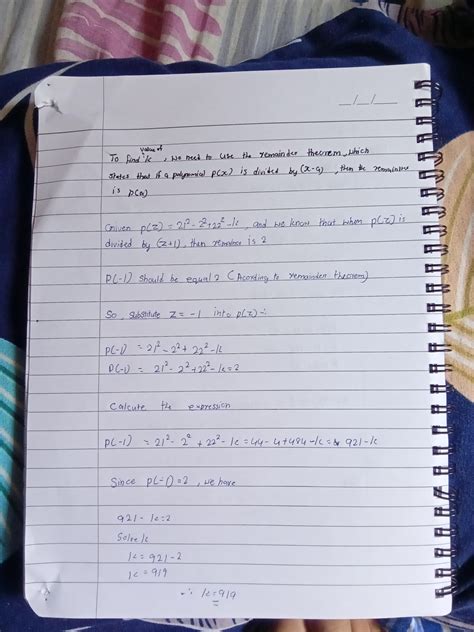 __/__/__
value of
To find k, we need to use the remainder theorem, which
states that if a polynomial p(x) is divided by (x-a), then the remainder
is p(a)
Given p(z) = 21²-z²+22²-k, and we know that when p(z) is
divided by (z+1), then remainder is 2
P(-1) should be equal 2 (Acording to remainder theorem)
So, substitute z = -1 into p(z) :-
p(-1) = 21²-2²+22²-k
p(-1) = 21²-2²+22²-k=2
Calculate the expression
p(-1) = 21²-2²+22²-k=44-4+484-k= 921-k
Since p(-1)=2, we have
921-k=2
Solve k
k=921-2
k=919
∴ k=919